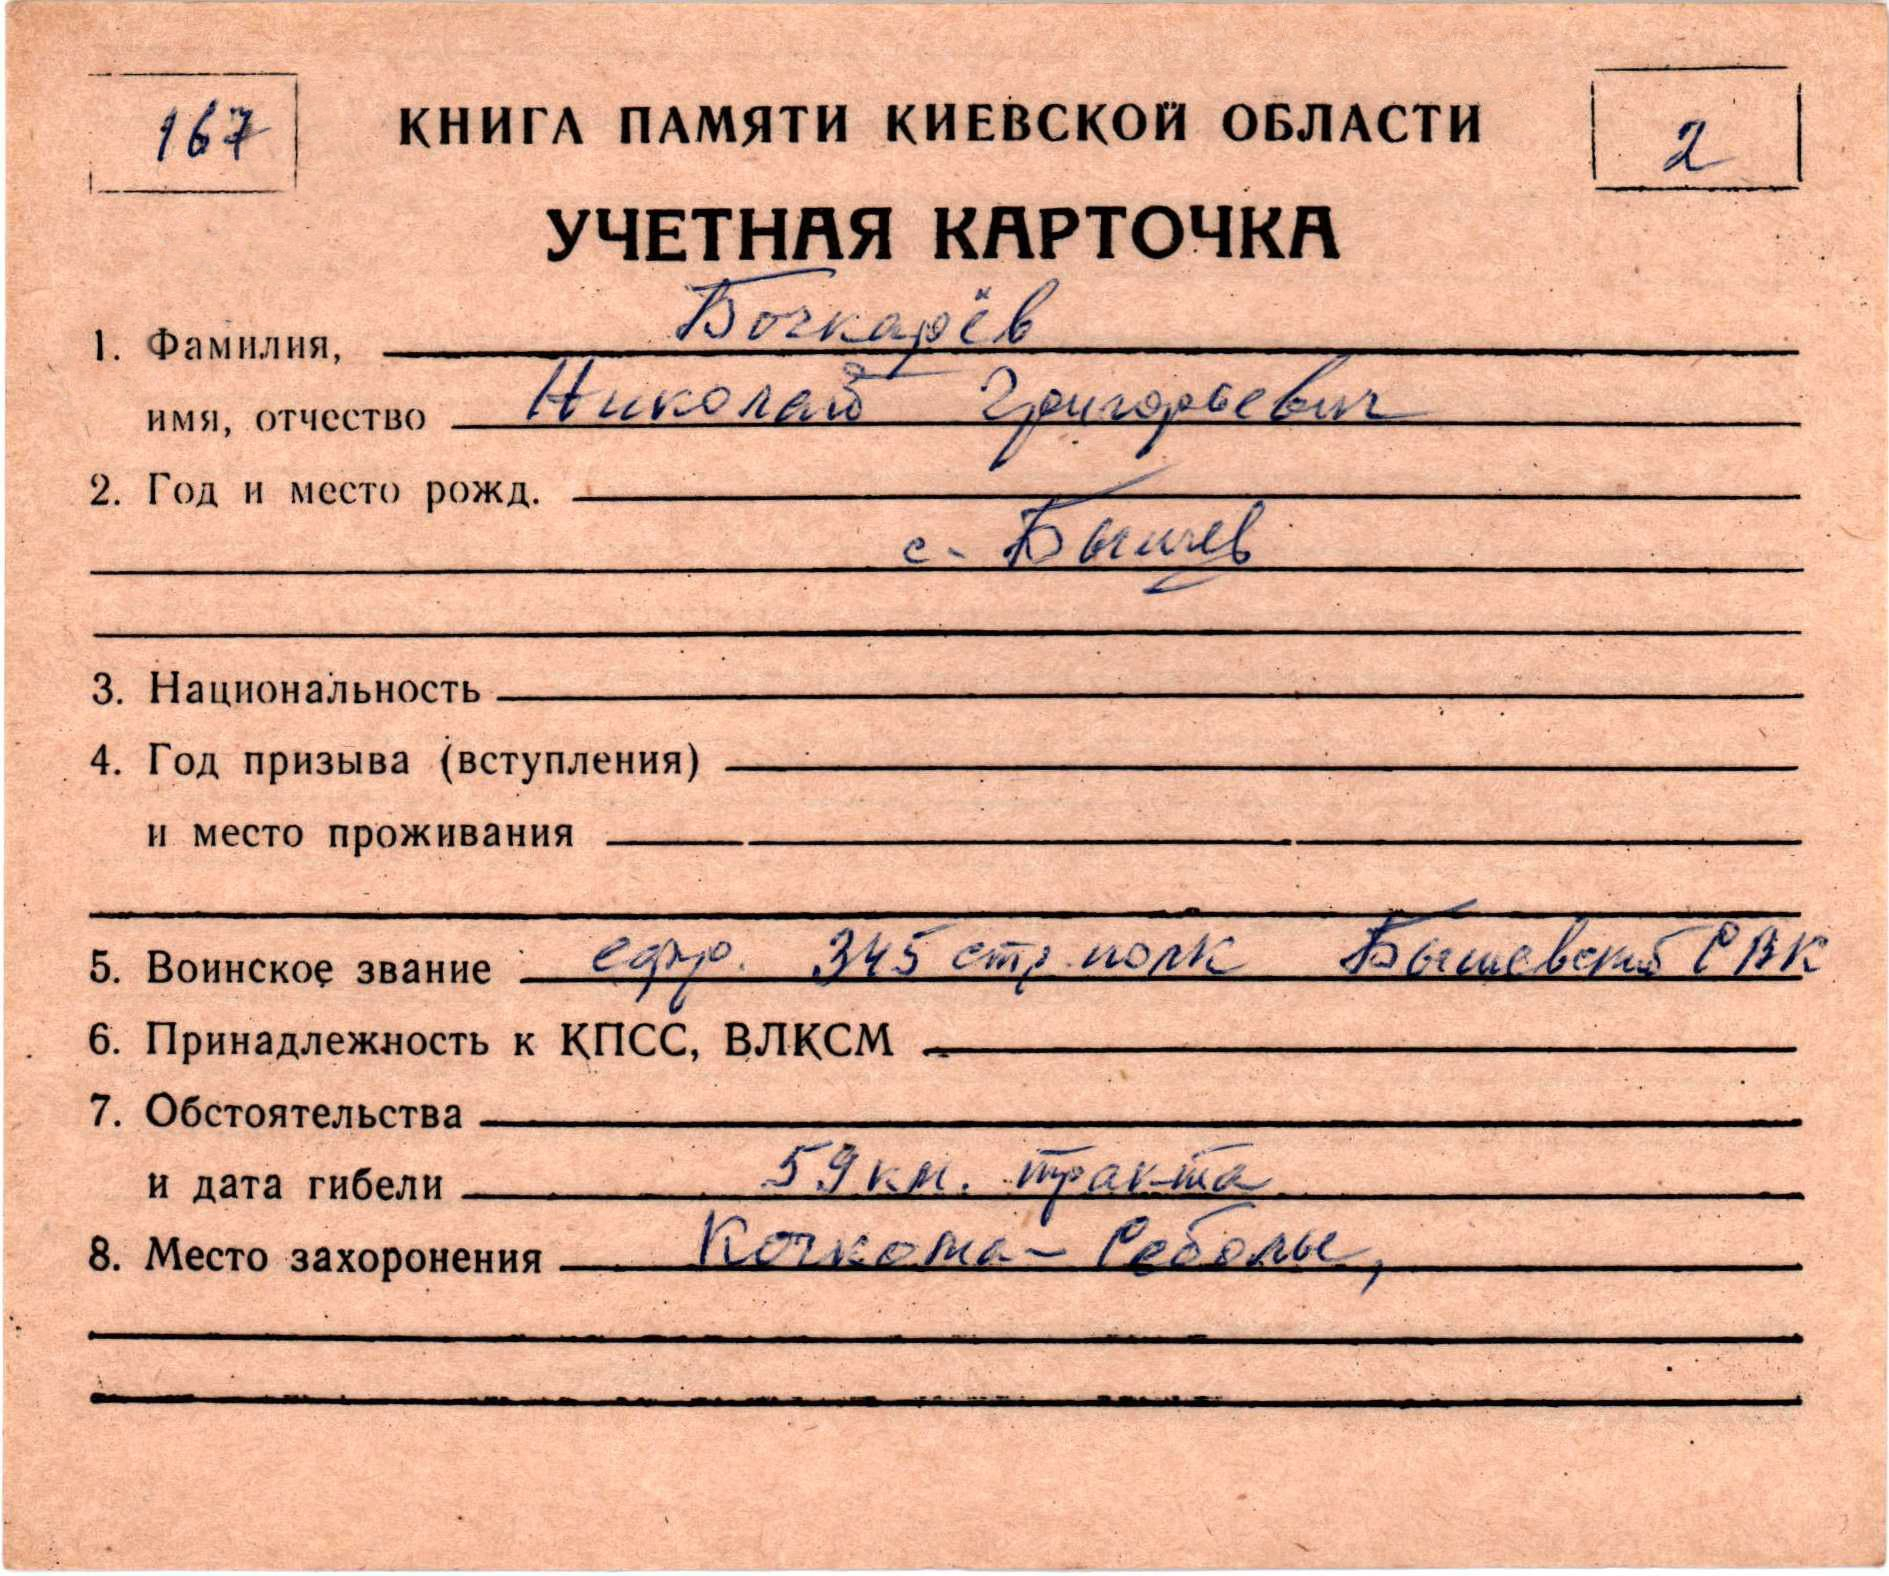 167 КНИГА ПАМЯТИ КИЕВСКОЙ ОБЛАСТИ 2
УЧЕТНАЯ КАРТОЧКА
1. Фамилия, Бочкарёв
имя, отчество Николай Григорьевич
2. Год и место рожд.
с. Бышев
3. Национальность
4. Год призыва (вступления)
и место проживания
5. Воинское звание ефр. 345 стр. полк Бышевский РВК
6. Принадлежность к КПСС, ВЛКСМ
7. Обстоятельства
и дата гибели 59 км. тракта
8. Место захоронения Кочкома - Реболы,